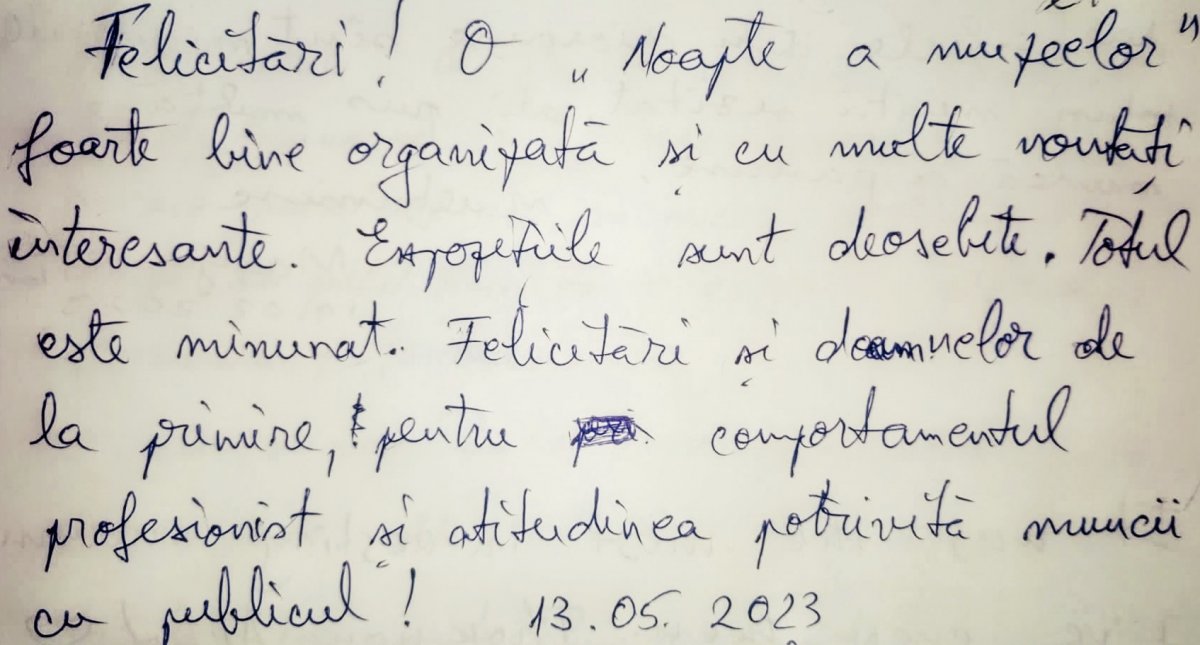 Felicitări! O „Noapte a muzeelor”
foarte bine organizată și cu multe noutăți
interesante. Expozițiile sunt deosebite. Totul
este minunat. Felicitări și doamnelor de
la primire, pentru comportamentul
profesionist și atitudinea potrivită muncii
cu publicul! 13.05.2023